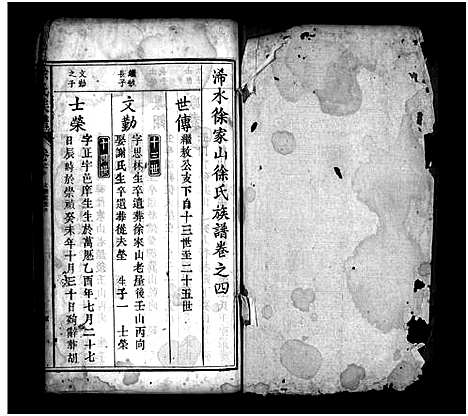 浠水徐家山徐氏族譜卷之四
世傳
繼敖公支下自十三世至二十五世
十三世
繼敖長子
文勤
字思林生卒遺葬徐家山老屋後壬山丙向
娶謝氏生卒遺葬從夫塋 生子一 士榮
十四世
文勤之子
士榮
字正宇邑庠生生於萬歷乙酉年七月二十七
日辰時於崇禎癸未年十月三十日 葬胡